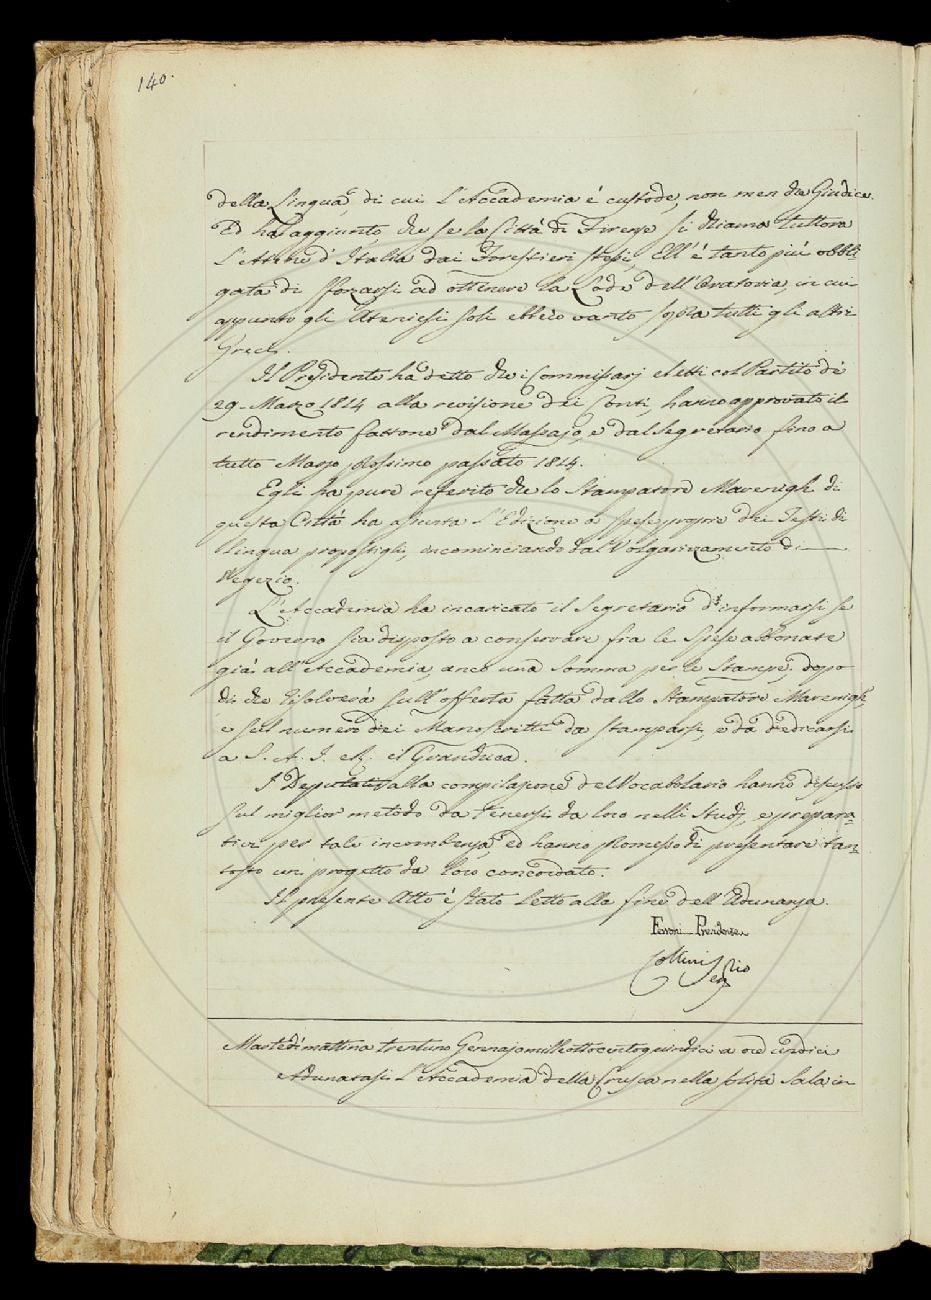 140.
della Lingua, di cui l'Accademia é custode, non men che Giudice.
Ed ha aggiunto, che se la Città di Firenze si chiama tuttora
l'Atene d'Italia dai Forestieri stessi, Ell'é tanto più obbli-
gata di sforzarsi ad ottenere la Lode dell'Oratoria, in cui
appunto gli Ateniesi soli ebbero vanto sopra tutti gli altri
Greci.
Il Presidente ha detto che i Commissarj eletti col Partito de'
29. Marzo 1814 alla revisione dei Conti, hanno approvato il
rendimento fattone dal Massajo, e dal Segretario fino a
tutto Marzo prossimo passato 1814.
Egli ha pure referito che lo Stampatore Marenigh di
questa Città ha assunta l'Edizione a spese proprie dei Testi di
Lingua propostigli, incominciando dal Volgarizzamento di
Vegezio.
L'Accademia ha incaricato il Segretario d'informarsi se
il Governo sia disposto a conservare fra le Spese abbonate
già all'Accademia, anco una somma per le Stampe, dopo
di che risolverà sull'offerta fatta dallo Stampatore Marenigh,
e sul numero dei Manoscritti da stamparsi, e da dedicarsi
a S. A. I. e R. il Granduca.
I Deputati alla compilazione del Vocabolario hanno discusso
sul miglior metodo da tenersi da loro nelli Studj, e prepara-
tivi per tale incombenza, ed hanno promesso di presentare tan-
tosto un progetto da loro concordato.
Il presente Atto é stato letto alla fine dell'Adunanza.
Ferroni Presidente
Collini Segrio
Martedì mattina trentuno Gennajo milleottocentoquindici a ore undici
Adunatasi l'Accademia della Crusca nella solita Sala in